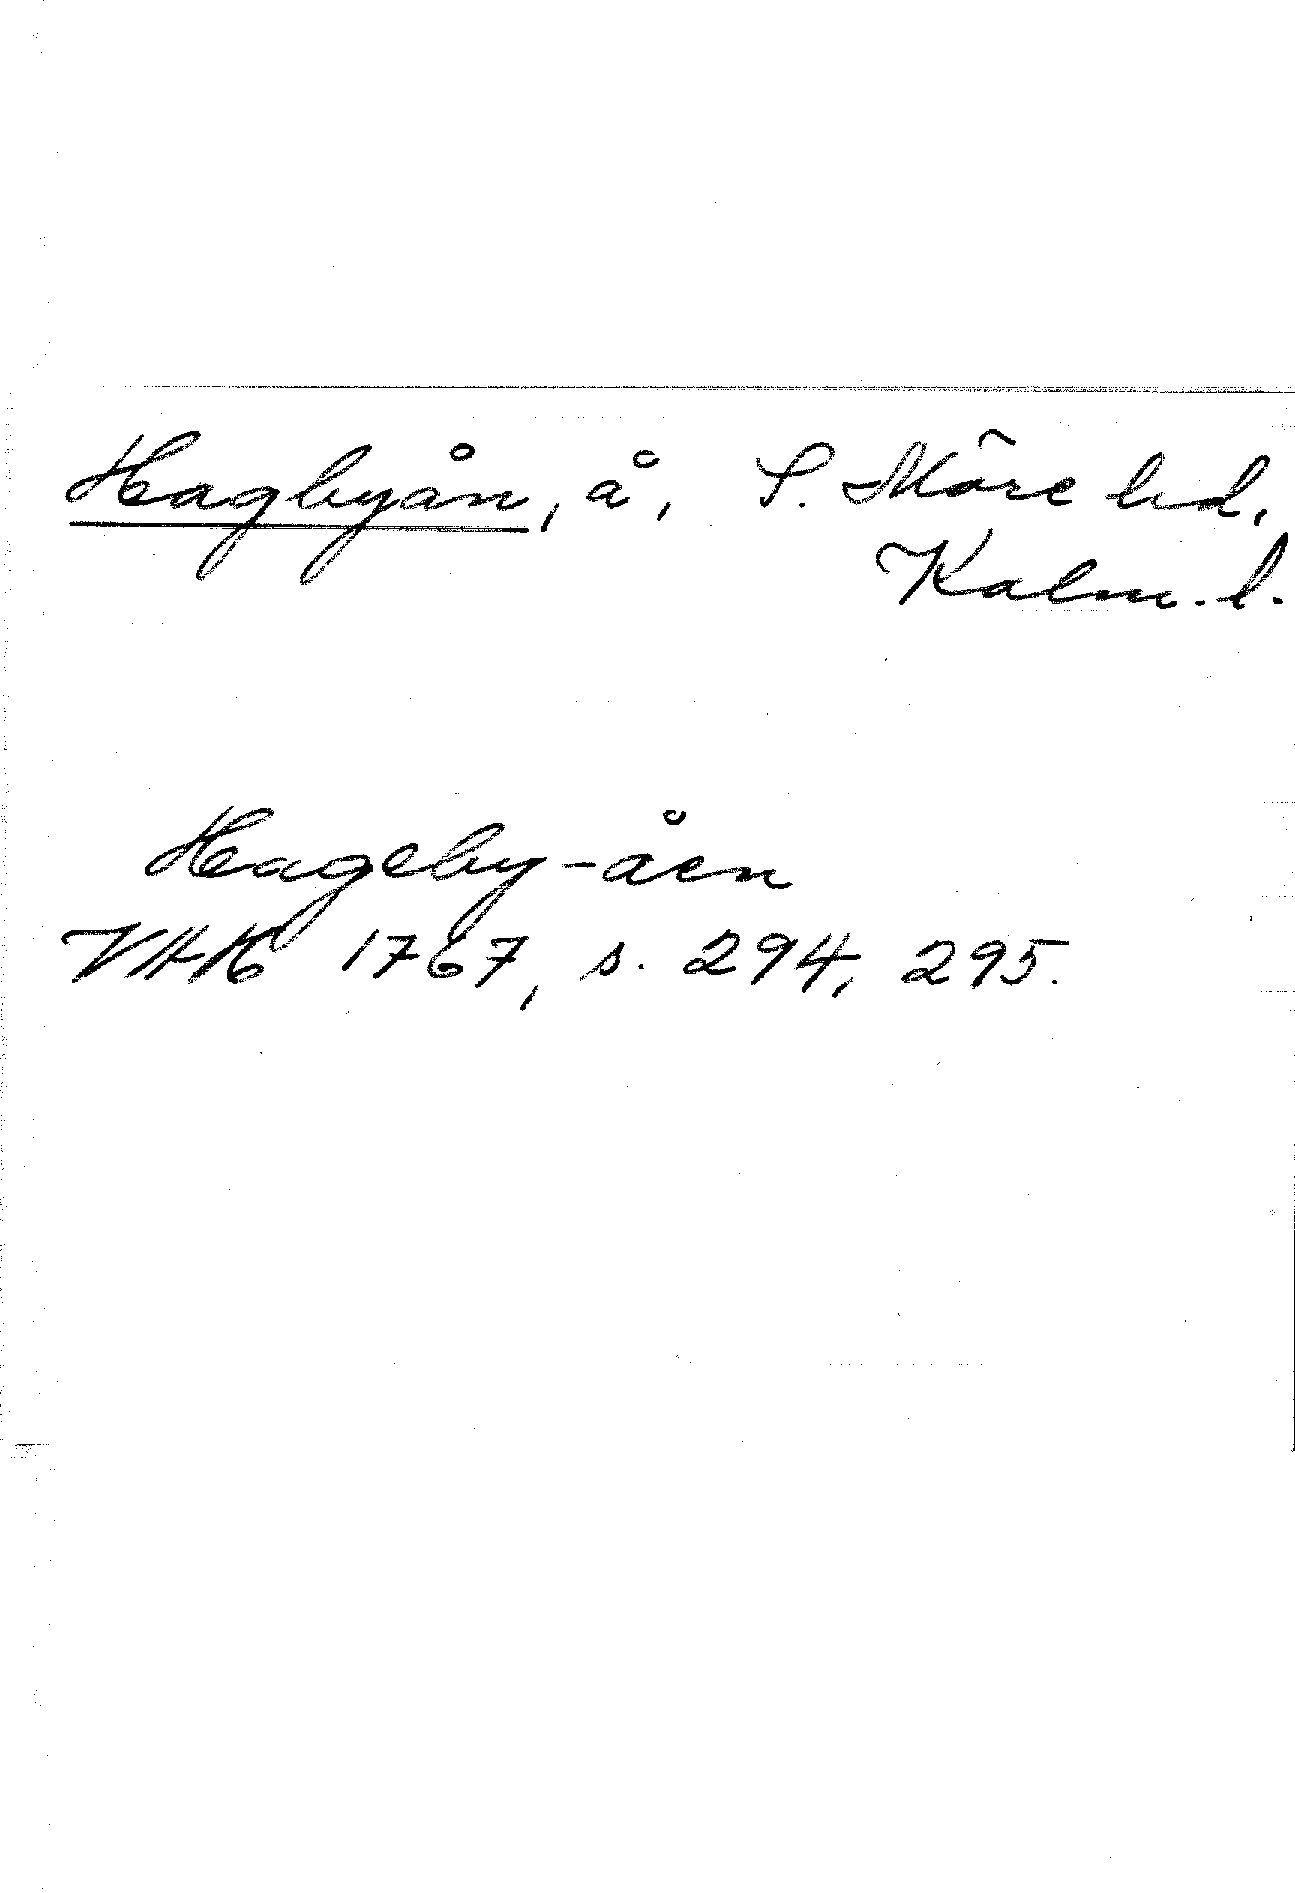 Hagbyån, å, S. Möre hd,
Kalm. l.
Hageby-åen
VAH 1767, s. 294, 295.